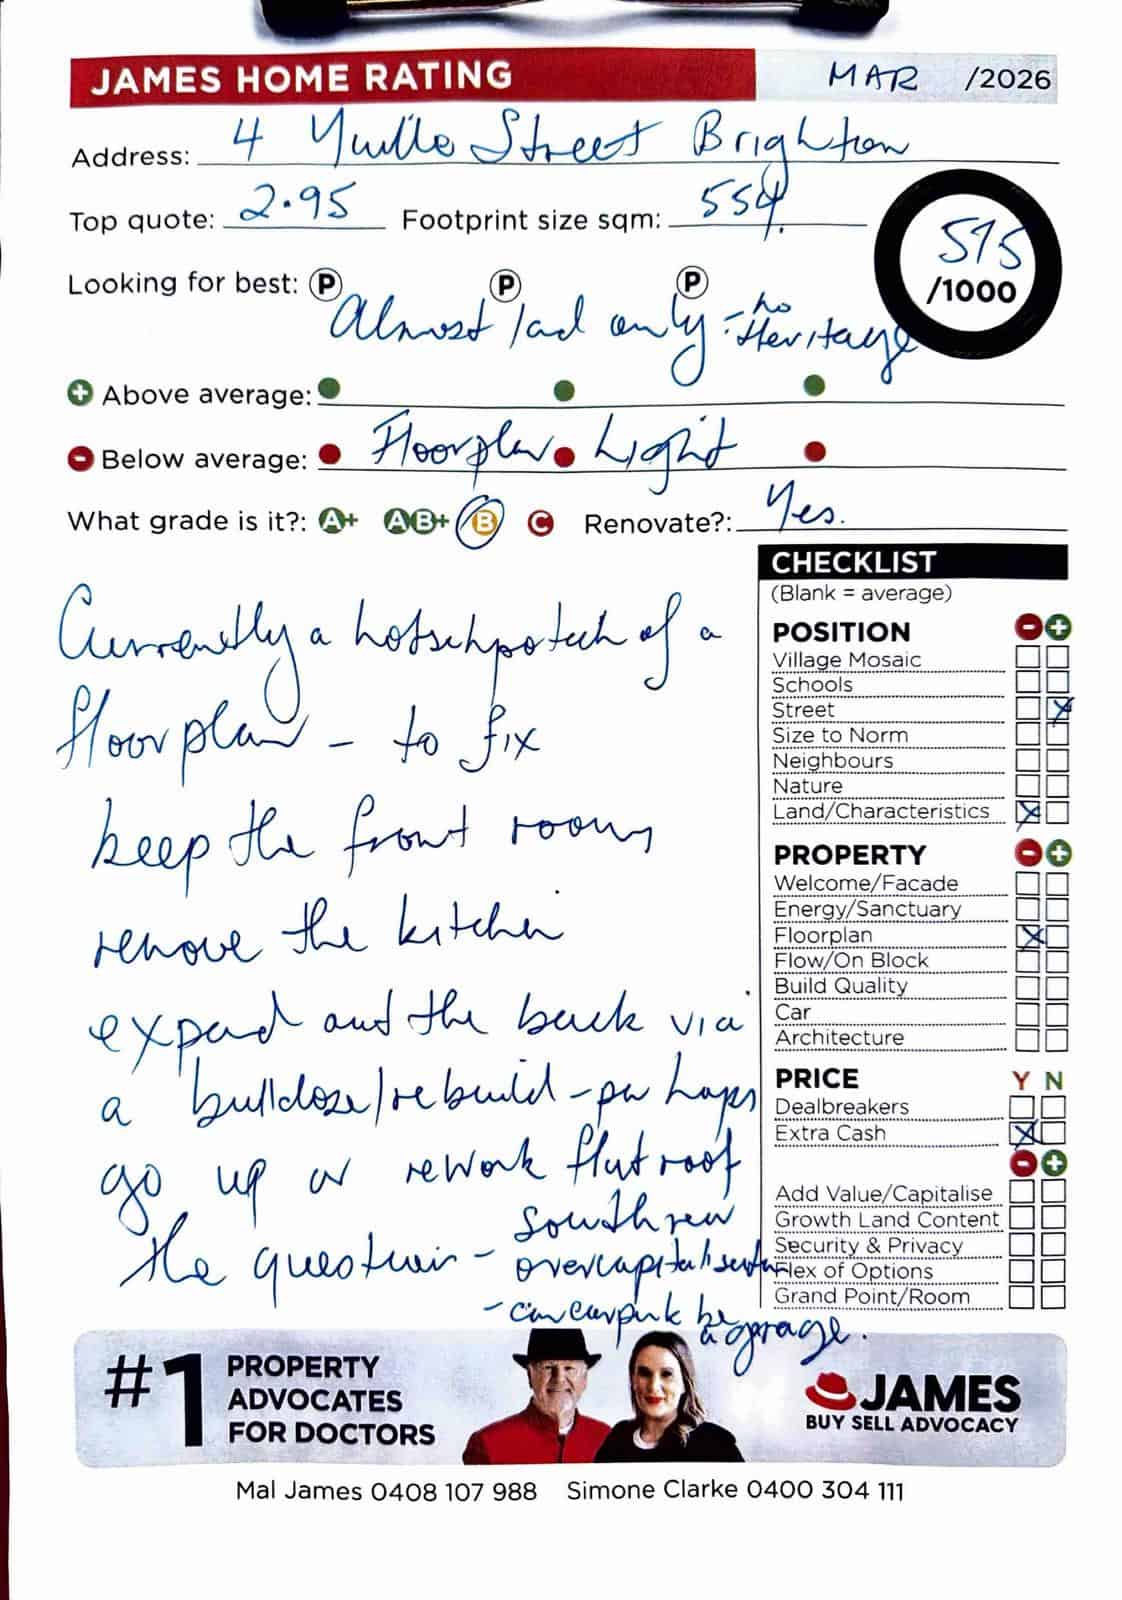 JAMES HOME RATING MAR /2026
Address: 4 Yuille Street Brighton
Top quote: 2.95 Footprint size sqm: 554
575
/1000
Looking for best: P P P
Almost land only - no Heritage
+ Above average:
- Below average: Floorplan Light
What grade is it?: A+ AB+ B C Renovate?: Yes.
Currently a hotschpotch of a
floorplan - to fix
keep the front rooms
remove the kitchen
expand out the back via
a bulldoze/rebuild - perhaps
go up or rework flat roof
South rear
the question - overcapitalisation
- can carpark be
a garage.
CHECKLIST
(Blank = average)
POSITION - +
Village Mosaic
Schools
Street X
Size to Norm
Neighbours
Nature
Land/Characteristics X
PROPERTY - +
Welcome/Facade
Energy/Sanctuary
Floorplan X
Flow/On Block
Build Quality
Car
Architecture
PRICE Y N
Dealbreakers
Extra Cash X
- +
Add Value/Capitalise
Growth Land Content
Security & Privacy
Flex of Options
Grand Point/Room
#1 PROPERTY
ADVOCATES
FOR DOCTORS
JAMES
BUY SELL ADVOCACY
Mal James 0408 107 988 Simone Clarke 0400 304 111